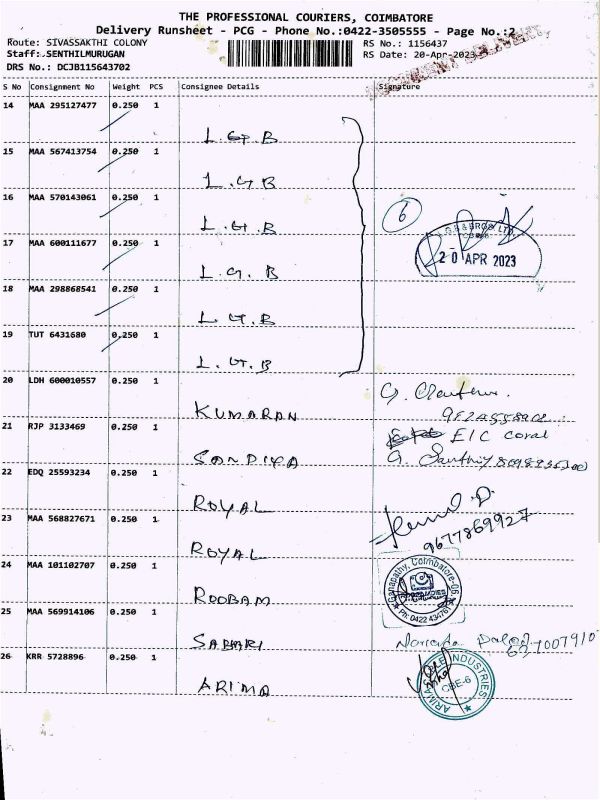 THE PROFESSIONAL COURIERS, COIMBATORE
Delivery Runsheet - PCG - Phone No.:0422-3505555 - Page No.:2
Route: SIVASSAKTHI COLONY RS No.: 1156437
Staff: SENTHILMURUGAN RS Date: 20-Apr-2023
DRS No.: DCJB115643702
S No Consignment No Weight PCS Consignee Details Signature
14 MAA 295127477 0.250 1
L.G.B
15 MAA 567413754 0.250 1
L.G.B
16 MAA 570143061 0.250 1
L.G.B
6
17 MAA 600111677 0.250 1
L.G.B
20 APR 2023
18 MAA 298868541 0.250 1
L.G.B
19 TUT 6431680 0.250 1
L.G.B
20 LDH 600010557 0.250 1
KUMARAN
21 RJP 3133469 0.250 1
EIC coral
SANDIYA
22 EDQ 25593234 0.250 1
ROYAL
23 MAA 568827671 0.250 1
9677869927
ROYAL
24 MAA 101102707 0.250
Ganapathy, Coimbatore-06
ROOBAM
25 MAA 569914106 0.250 1
SABARI
26 KRR 5728896 0.250 1
INDUSTRIES
CBE-6
ARIMA